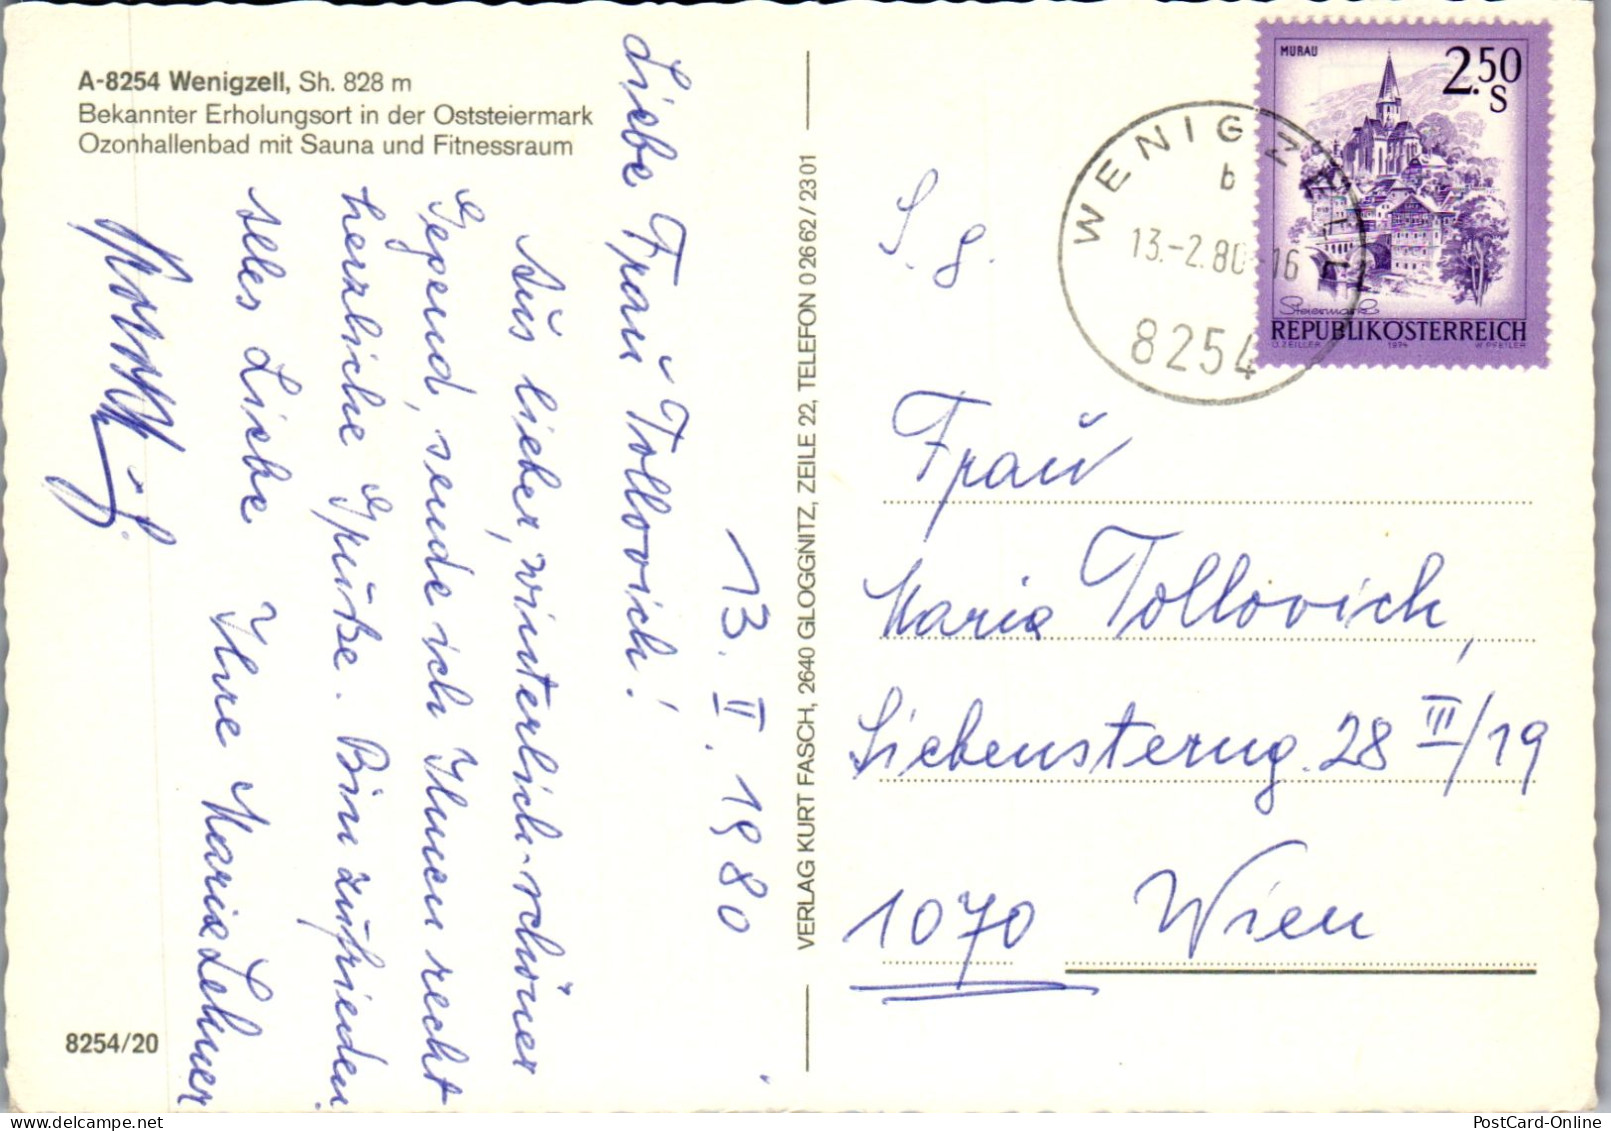 A-8254 Wenigzell, Sh. 828 m
Bekannter Erholungsort in der Oststeiermark
Ozonhallenbad mit Sauna und Fitnessraum
13. II. 1980
Liebe Frau Tollovich!
Aus lieber, winterlich-schöner
Gegend, sende ich Ihnen recht
herzliche Grüße. Bin zufrieden.
Alles Liebe
Ihre Maria Lehner
8254/20
VERLAG KURT FASCH, 2640 GLOGGNITZ, ZEILE 22, TELEFON 0 26 62 / 23 01
MURAU
2.50
S
Steiermark
REPUBLIK ÖSTERREICH
O. ZEILLER 1974 W. PFEILER
WENIGZELL
b
13.-2.80-16
8254
S. g.
Frau
Maria Tollovich,
Siebensterng. 28 III/19
1070 Wien
PostCard-Online